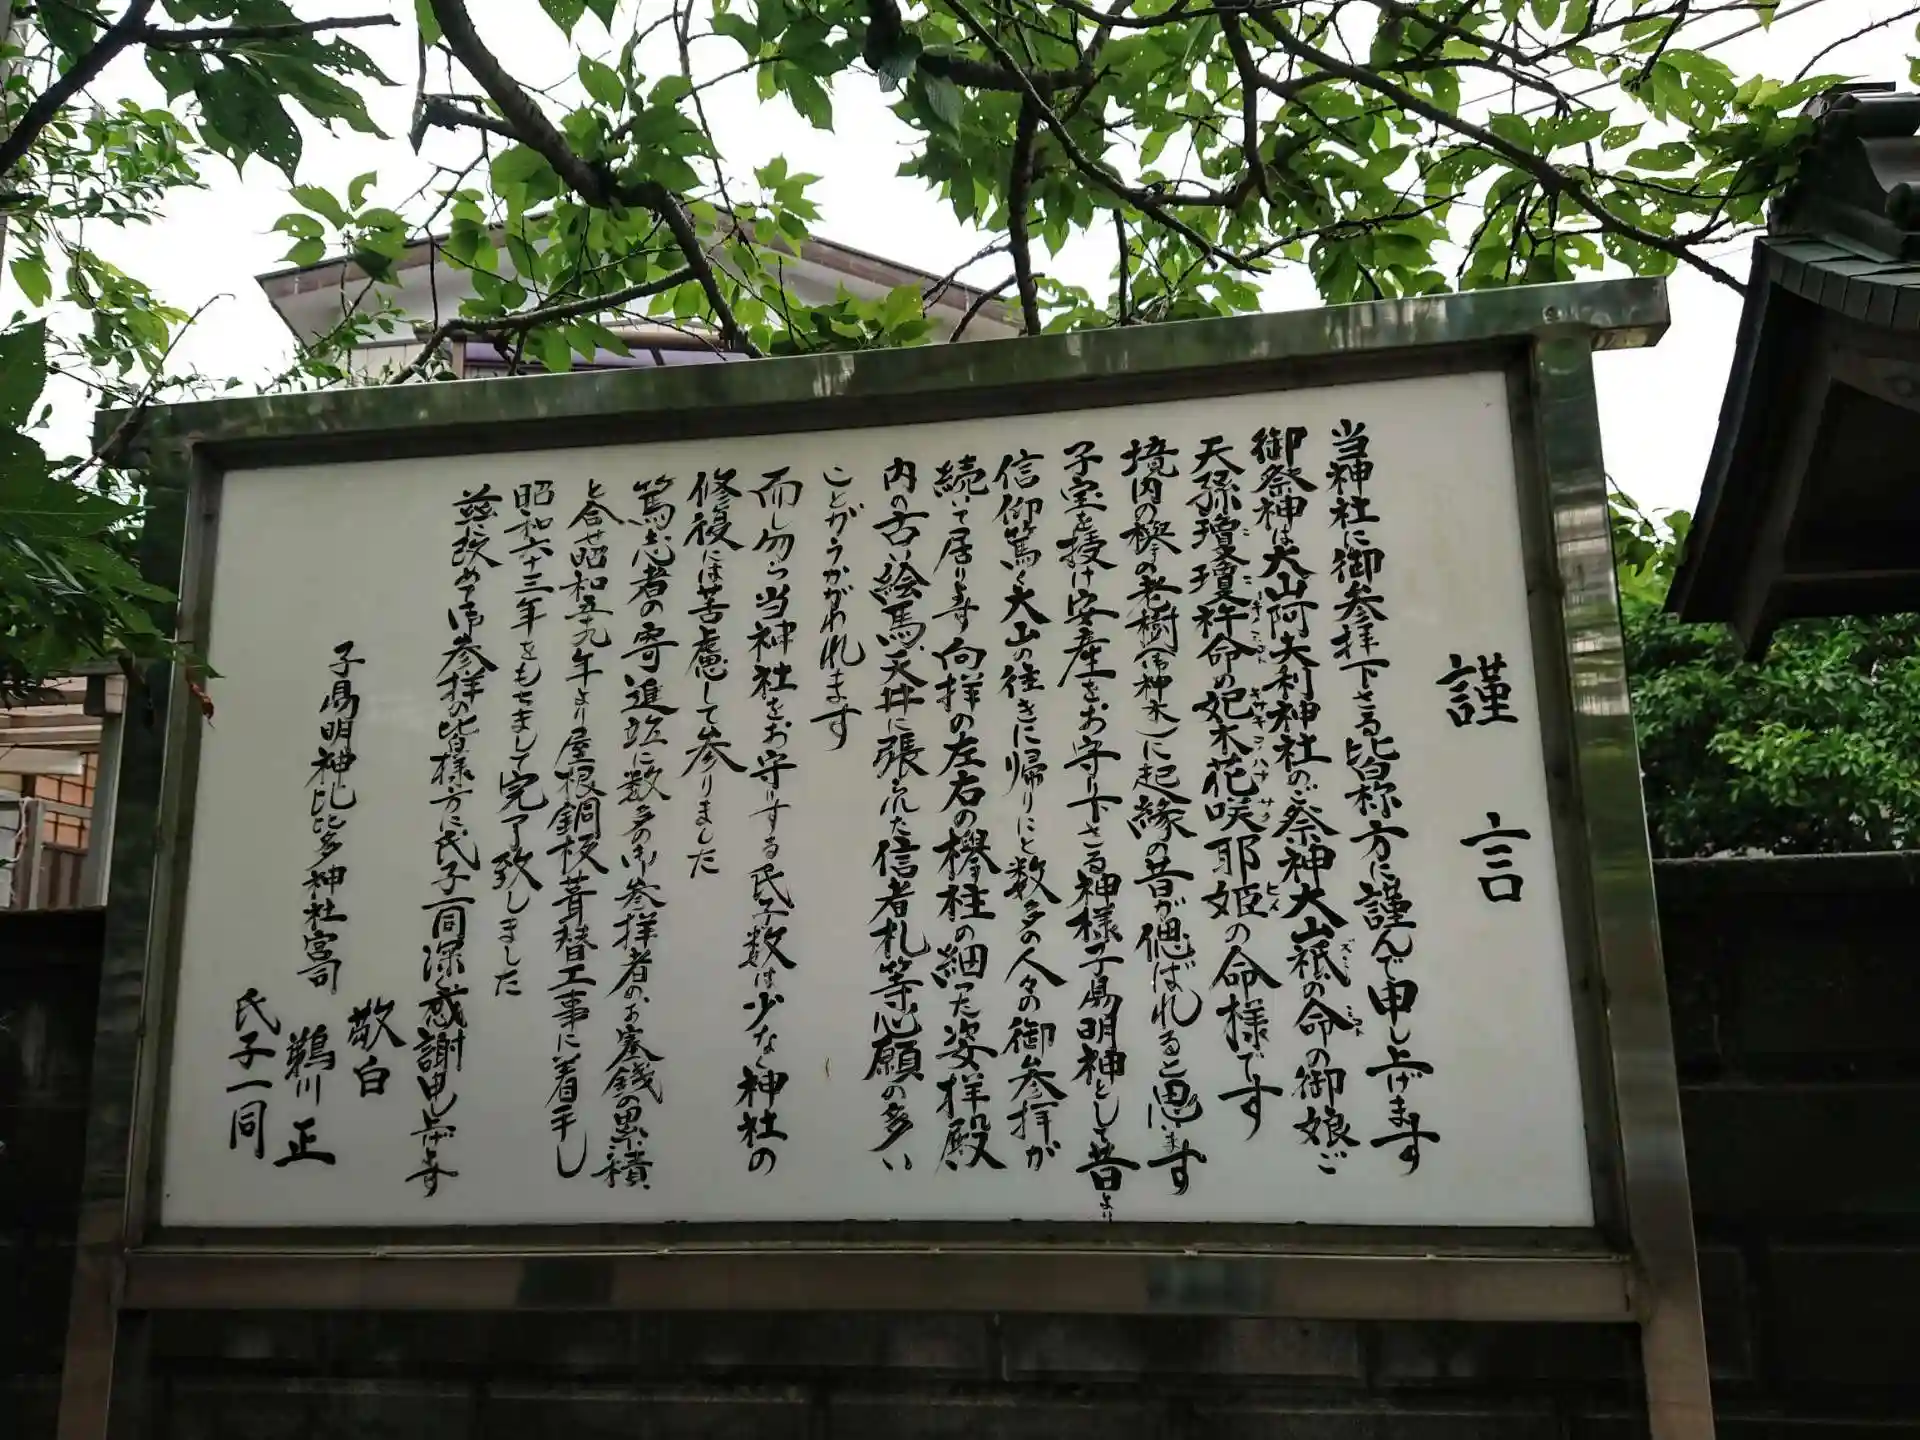 謹言
当神社に御参拝下さる皆様方に謹んで申し上げます
御祭神は大山阿夫利神社のご祭神大山祇の命の御娘ご
天孫瓊瓊杵命の妃木花咲耶姫の命様です
境内の欅の老樹(御神木)に起縁の昔が偲ばれると思います
子宝を授け安産をお守り下さる神様子易明神として昔より
信仰篤く大山の往きに帰りにと数多の人々の御参拝が
続いて居ります向拝の左右の欅柱の細った姿拝殿
内の古絵馬天井に張られた信者札等心願の多い
ことがうかがわれます
而し乍ら当神社をお守りする氏子数は少なく神社の
修復には苦慮して参りました
篤志者の寄進並に数多の御参拝者のお賽銭の累積
と合せ昭和五十九年より屋根銅板葺替工事に着手し
昭和六十三年をもちまして完了致しました
茲に改めて御参拝の皆様方に氏子一同深く感謝申し上げます
敬白
子易明神比比多神社宮司
鵜川 正
氏子一同